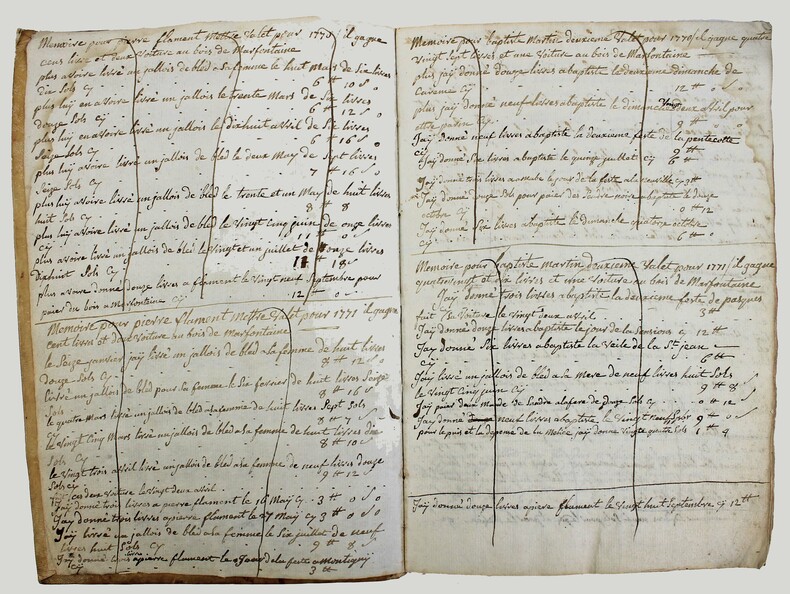 Memoire pour pierre flament Mettre Valet pour 1770 / il gagne
cens livre et deux Voiture au bois de Marfontaine
plus avoire livré au jallois de bled a Sa femme le huit Mars de Six livres
dix Sols Cy 6 ₶ 10 S
plus luy en avoire livré un jallois le trente Mars de Six livres
douze Sols 6 ₶ 12 S
plus luy en avoire livré un jallois le dixhuit avril de Six livres
Seize Sols Cy 6 ₶ 16 S
plus luy avoire livré un jallois de bled le deux May de Sept livres
Seize Sols Cy 7 ₶ 16 S
plus luy avoire livré un jallois de bled le trente et un May de huit livres
huit Sols Cy 8 ₶ 8
plus luy avoire livré un jallois de bled le Vingt Cinq juin de onze livres
Cy 11 ₶ 0
plus avoire livré un jallois de bled le Vingt et un juillet de onze livres
dixhuit Sols Cy 11 ₶ 18 S
plus avoire donné douze livres a flament le Vingt neuf Septembre pour
paier du bois a Marfontaine Cy 12 ₶ 0
Memoire pour pierre flament Mettre Valet pour 1771 il gagne
Cent livres et deux Voiture au bois de Marfontaine
le Seize janvier jaÿ livré un jallois de bled a Sa femme de huit livres
douze Sols Cy 8 ₶ 12 S
livré un jallois de bled pour Sa femme le Six fevrier de huit livres Seize
Sols 8 ₶ 16 S
le quatre Mars livré un jallois de bled a la femme de huit livres Sept Sols
Cy
le Vingt Cinq Mars livré un jallois de bled a la femme de huit livres dix
Sols Cy 8 ₶ 10 S
le Vingt trois avril livré un jallois de bled a la femme de neuf livres douze
Sols Cy 9 ₶ 12 S
deux Voiture le Vingt deux avril
Jaÿ donné trois livres a pierre flament le 16 Maÿ Cy 3 ₶ 0 S
Jaÿ donné trois livres a pierre flament le 27 Maÿ Cy 3 ₶ 0 S
Jaÿ livré un jallois de bled a la femme le Six juillet de neuf
livres huit Sols Cy 9 ₶ 8 S
Jaÿ donné trois livre a pierre flament le jour de la feste a montigny
Cy 3 ₶
Memoire pour baptiste Martin deuxieme Valet pour 1770 / il gagne quatre
Vingt Sept livres et une Voiture au bois de Marfontaine
plus jaÿ donné douze livres a baptiste le deuxieme dimanche de
Careme Cy 12 ₶
plus jaÿ donné neuf livres a baptiste le dimanche avril pour
9 ₶
Jaÿ donné neuf livres a baptiste la deuxieme feste de la pentecotte
Cy 9 ₶
Jaÿ donné Six livres a baptiste le quinze juillet Cy 6 ₶
Jaÿ donné trois livres le jour de la feste a la neuville Cy 3 ₶
Jaÿ donné douze Sols pour paier a baptiste le douze
octobre Cy 0 ₶ 12
Jaÿ donné Six livres a baptiste le dimanche quatorze octobre
Cy 6 ₶
Memoire pour baptiste Martin deuxieme Valet pour 1771 / il gagne
quatrevingt et dix livres et une Voiture au bois de Marfontaine
Jaÿ donné trois livres a baptiste la deuxieme feste de pasques
3 ₶
fait Sa Voiture le Vingt deux avril
Jaÿ donné douze livres a baptiste le jour de Cy 12 ₶
Jaÿ donné Six livres a baptiste la Veile de la St jean
Cy 6 ₶
Jaÿ livré un jallois de bled a la Mere de neuf livres huit Sols
le Vingt Cinq juin Cy 9 ₶ 8
Jaÿ paiÿ de douze Sols 0 ₶ 12
Jaÿ donné neuf livres a baptiste le Vingt neuf 9 ₶ 0
jaÿ donné Vingte quatre Sols 1 ₶ 4
Jaÿ donné douze livres a pierre flament le Vingt huit Septembre Cy 12 ₶